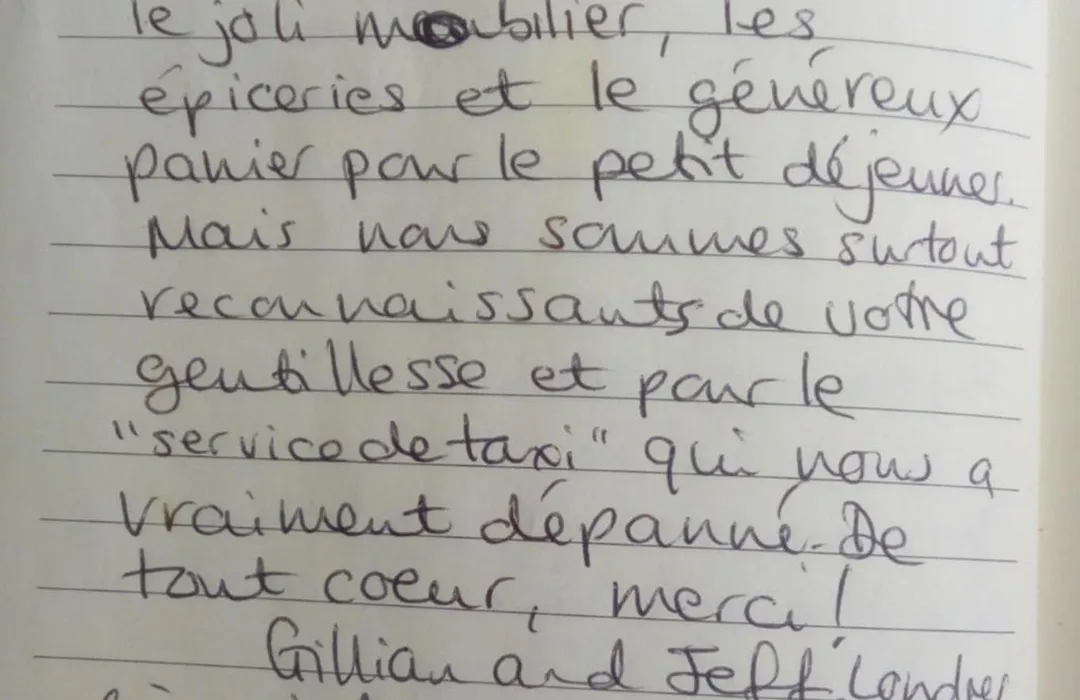 le joli mobilier, les
épiceries et le généreux
panier pour le petit déjeuner.
Mais nous sommes surtout
reconnaissants de votre
gentillesse et pour le
"service de taxi" qui nous a
vraiment dépanné. De
tout coeur, merci!
Gillian and Jeff Londres